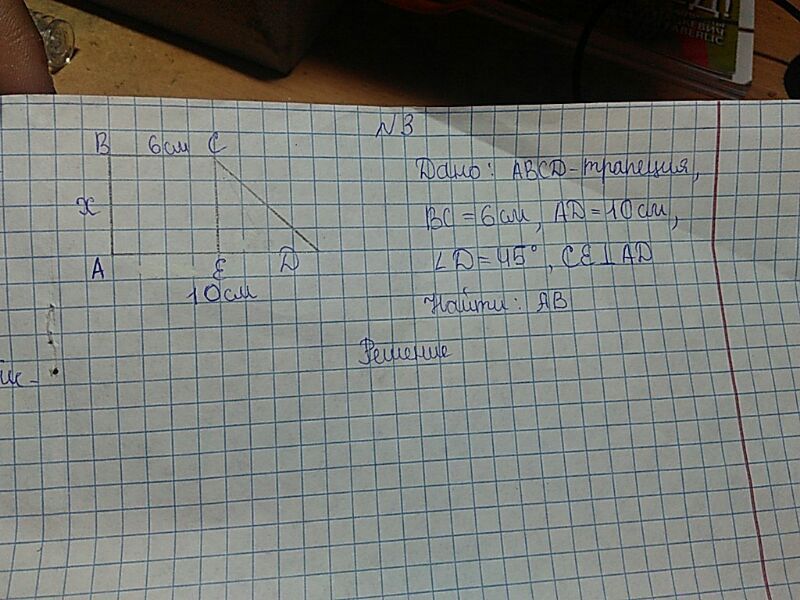 КЕВИЧ
FABERLIC
N3
B 6см C
x
A E D
10см
Дано: ABCD-трапеция,
BC=6см, AD=10см,
∠D=45°, CE⊥AD
Найти: AB
Решение